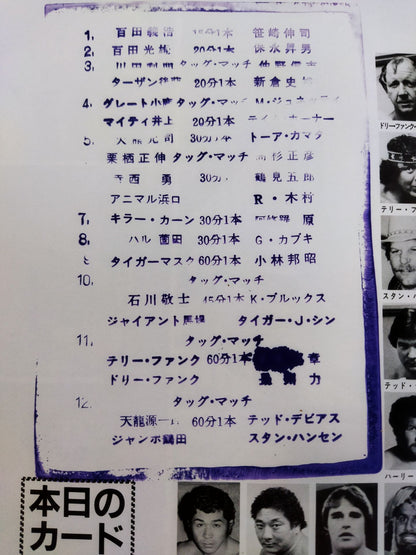 1, 百田義浩 15分1本 笹崎伸司
2, 百田光雄 20分1本 保永昇男
3, 川田利明 タッグ・マッチ 仲野信市
ターザン後藤 20分1本 新倉史裕
4, グレート小鹿 タッグ・マッチ M・
マイティ井上 20分1本
5, 大熊元司 30分1本 トーア・カマタ
栗栖正伸 タッグ・マッチ 高杉正彦
寺西 勇 30分 鶴見五郎
アニマル浜口 R・木村
7, キラー・カーン 30分1本 阿修羅 原
8, ハル 薗田 30分1本 G・カブキ
タイガーマスク 60分1本 小林邦昭
10, タッグ・マッチ
石川敬士 45分1本 K・ブルックス
ジャイアント馬場 タイガー・J・シン
11, タッグ・マッチ
テリー・ファンク 60分1本 章
ドリー・ファンク 力
12, タッグ・マッチ
天龍源一郎 60分1本 テッド・デビアス
ジャンボ鶴田 スタン・ハンセン
本日の
カード
ドリー・ファンク・
テリー・フ
スタン・ハ
テッド・
ハーリー・